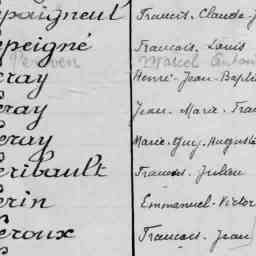 paigneul Francis-Claude-J
peigné Francois. Louis
Perven Marcel Antoi
eray Henri-Jean-Bapti
eray Jean-Marie-Fran
eray Marie-Guy-Auguste
eribault Francois-Julien
erin Emmanuel-Victor
eroux Francois-Jean